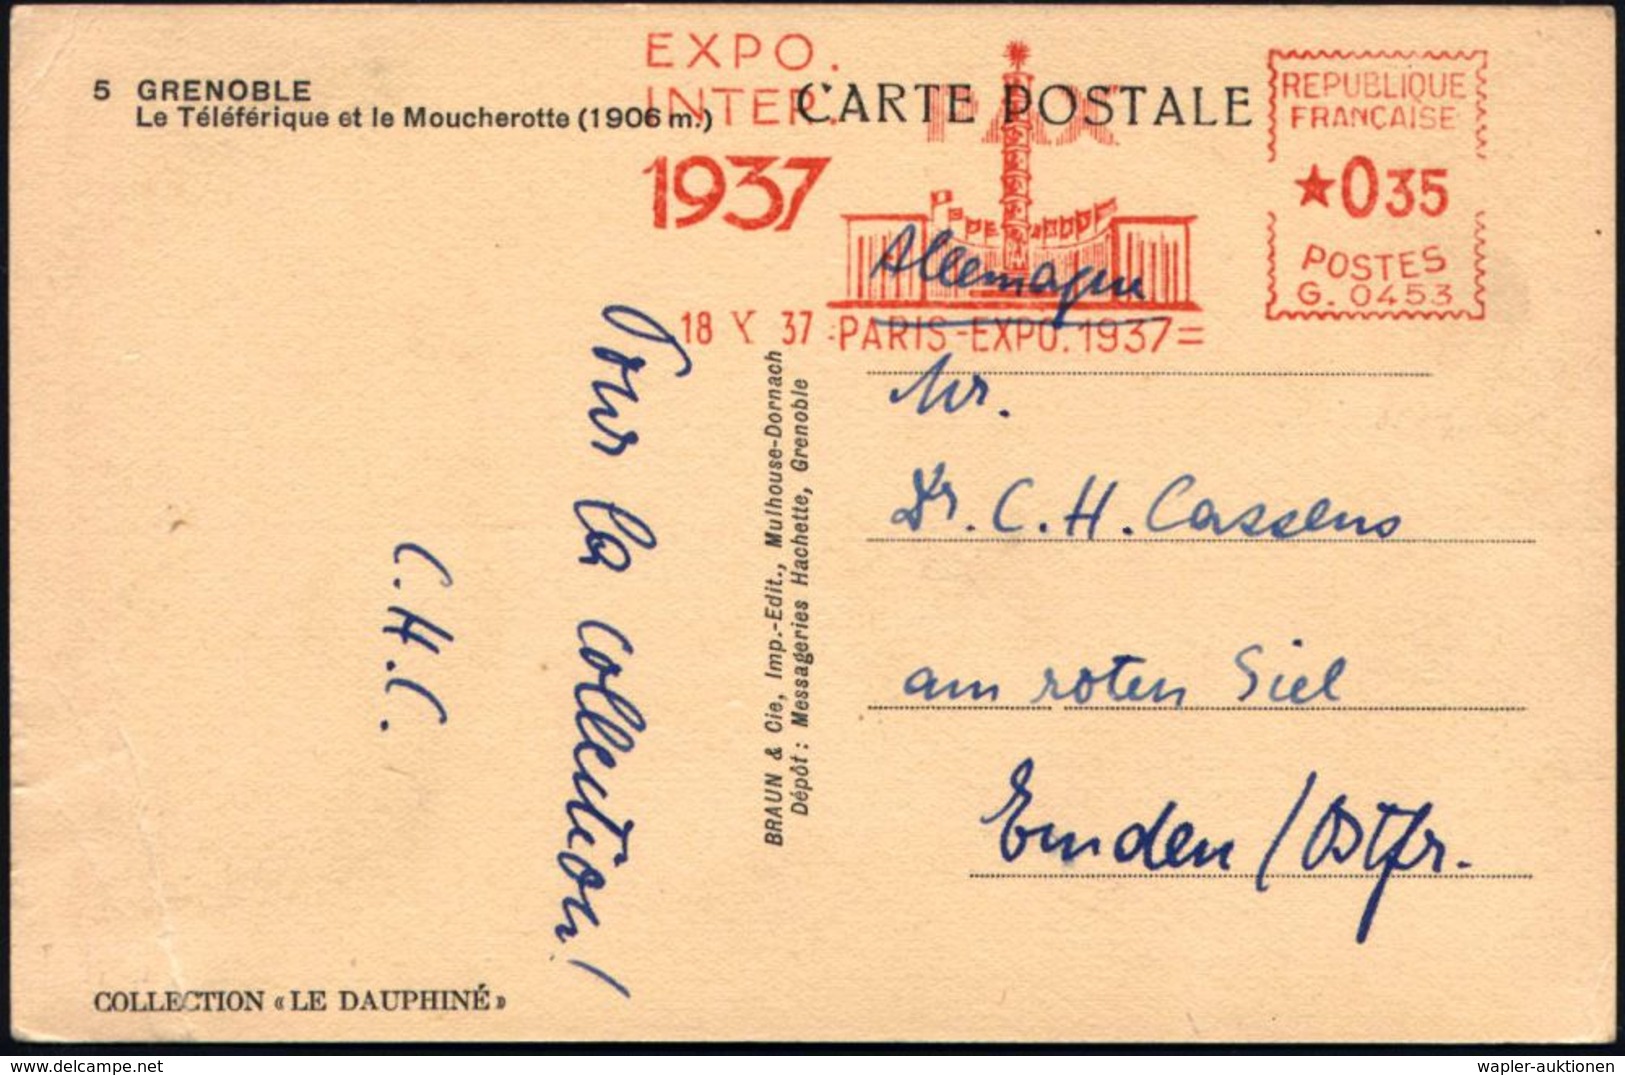 5 GRENOBLE
Le Téléférique et le Moucherotte (1906 m.)
EXPO.
INTER.
1937
CARTE POSTALE
PAX
REPUBLIQUE
FRANÇAISE
★035
POSTES
G. 0453
18 X 37 =PARIS-EXPO.1937=
Allemagne
Mr.
Dr. C. H. Cassens
am roten Siel
Emden / Ostfr.
Pour la collection!
C. H. C.
BRAUN & Cie, Imp.-Edit., Mulhouse-Dornach
Dépôt : Messageries Hachette, Grenoble
COLLECTION « LE DAUPHINÉ »
www.delcampe.net
wapler-auktionen